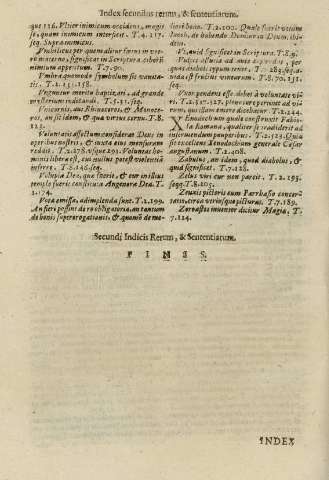 Index secundus rerum, & sententiarum.
que 116. Vltior inimicum occidens, magis
se, quam inimicum interficit. T.4.217.
seq. Supra inimicus.
Vmbilicus per quem alitur fœtus in vte-
ro materno, significat in Scriptura ciborũ
nimium appetitum. T.7.90.
Vmbra quomodo symbolum sit vanita-
tis. T.2.151.158.
Vnguentur merito baptizati, ad grande
præliũ
seq.
Vnicornis, aut Rhinoceros, & Monoce-
ros, an idem, & quæ virtus cornu. T.8.
123.
Voluntatis affectum considerat Deus in
operibus nostris, & iuxta eius mensuram
reddit. T.2.178. vsque 291. Voluntas ho-
minis libera est, cui nullus potest violentiã
inferre. T.8.146. seq.
Volupia Dea, quæ fuerit, & cur in illius
templo fuerit constituta Angenora Dea. T.
2.174.
Vota emissa, adimplenda sunt. T.2.199.
An fieri possint de re obligatoria, an tantum
de bonis supererogationis, & quando de
T.2.100.
Iacob, de habendo Dominum in Deum. ibi-
dem.
quid significet in Scriptura. T.8.9.
quid
quibus typum tenet. T.7.285. seq.
vua est fructus vinearum. T.8.70.151.
seq.
Vxor pendens esse debet à voluntate vi-
ri. T.2.517.527.
rum, quisnam dicebatur. T.2.244.
XEnodochium quale construxit Fabio-
la Romana, qualiter se tradiderit ad
inseruiendum pauperibus. T.2.523. Quis
sit excellens Xenodochium generale Cæsar
augustanum. T.2.408.
Zabulus, an idem, quod diabolus, &
quid significet. T.7.128.
Zelus viri cur non parcit. T.2.195.
seq. T.8.105.
Zeuxis pictoris cum Parrhasio concer-
tatio, circa vtriusque picturas. T.7.189.
Zoroastes inuentor dicitur Magiæ. T.
7.124.
Secundi Indicis Rerum, & Sententiarum.
FINIS.
INDEX